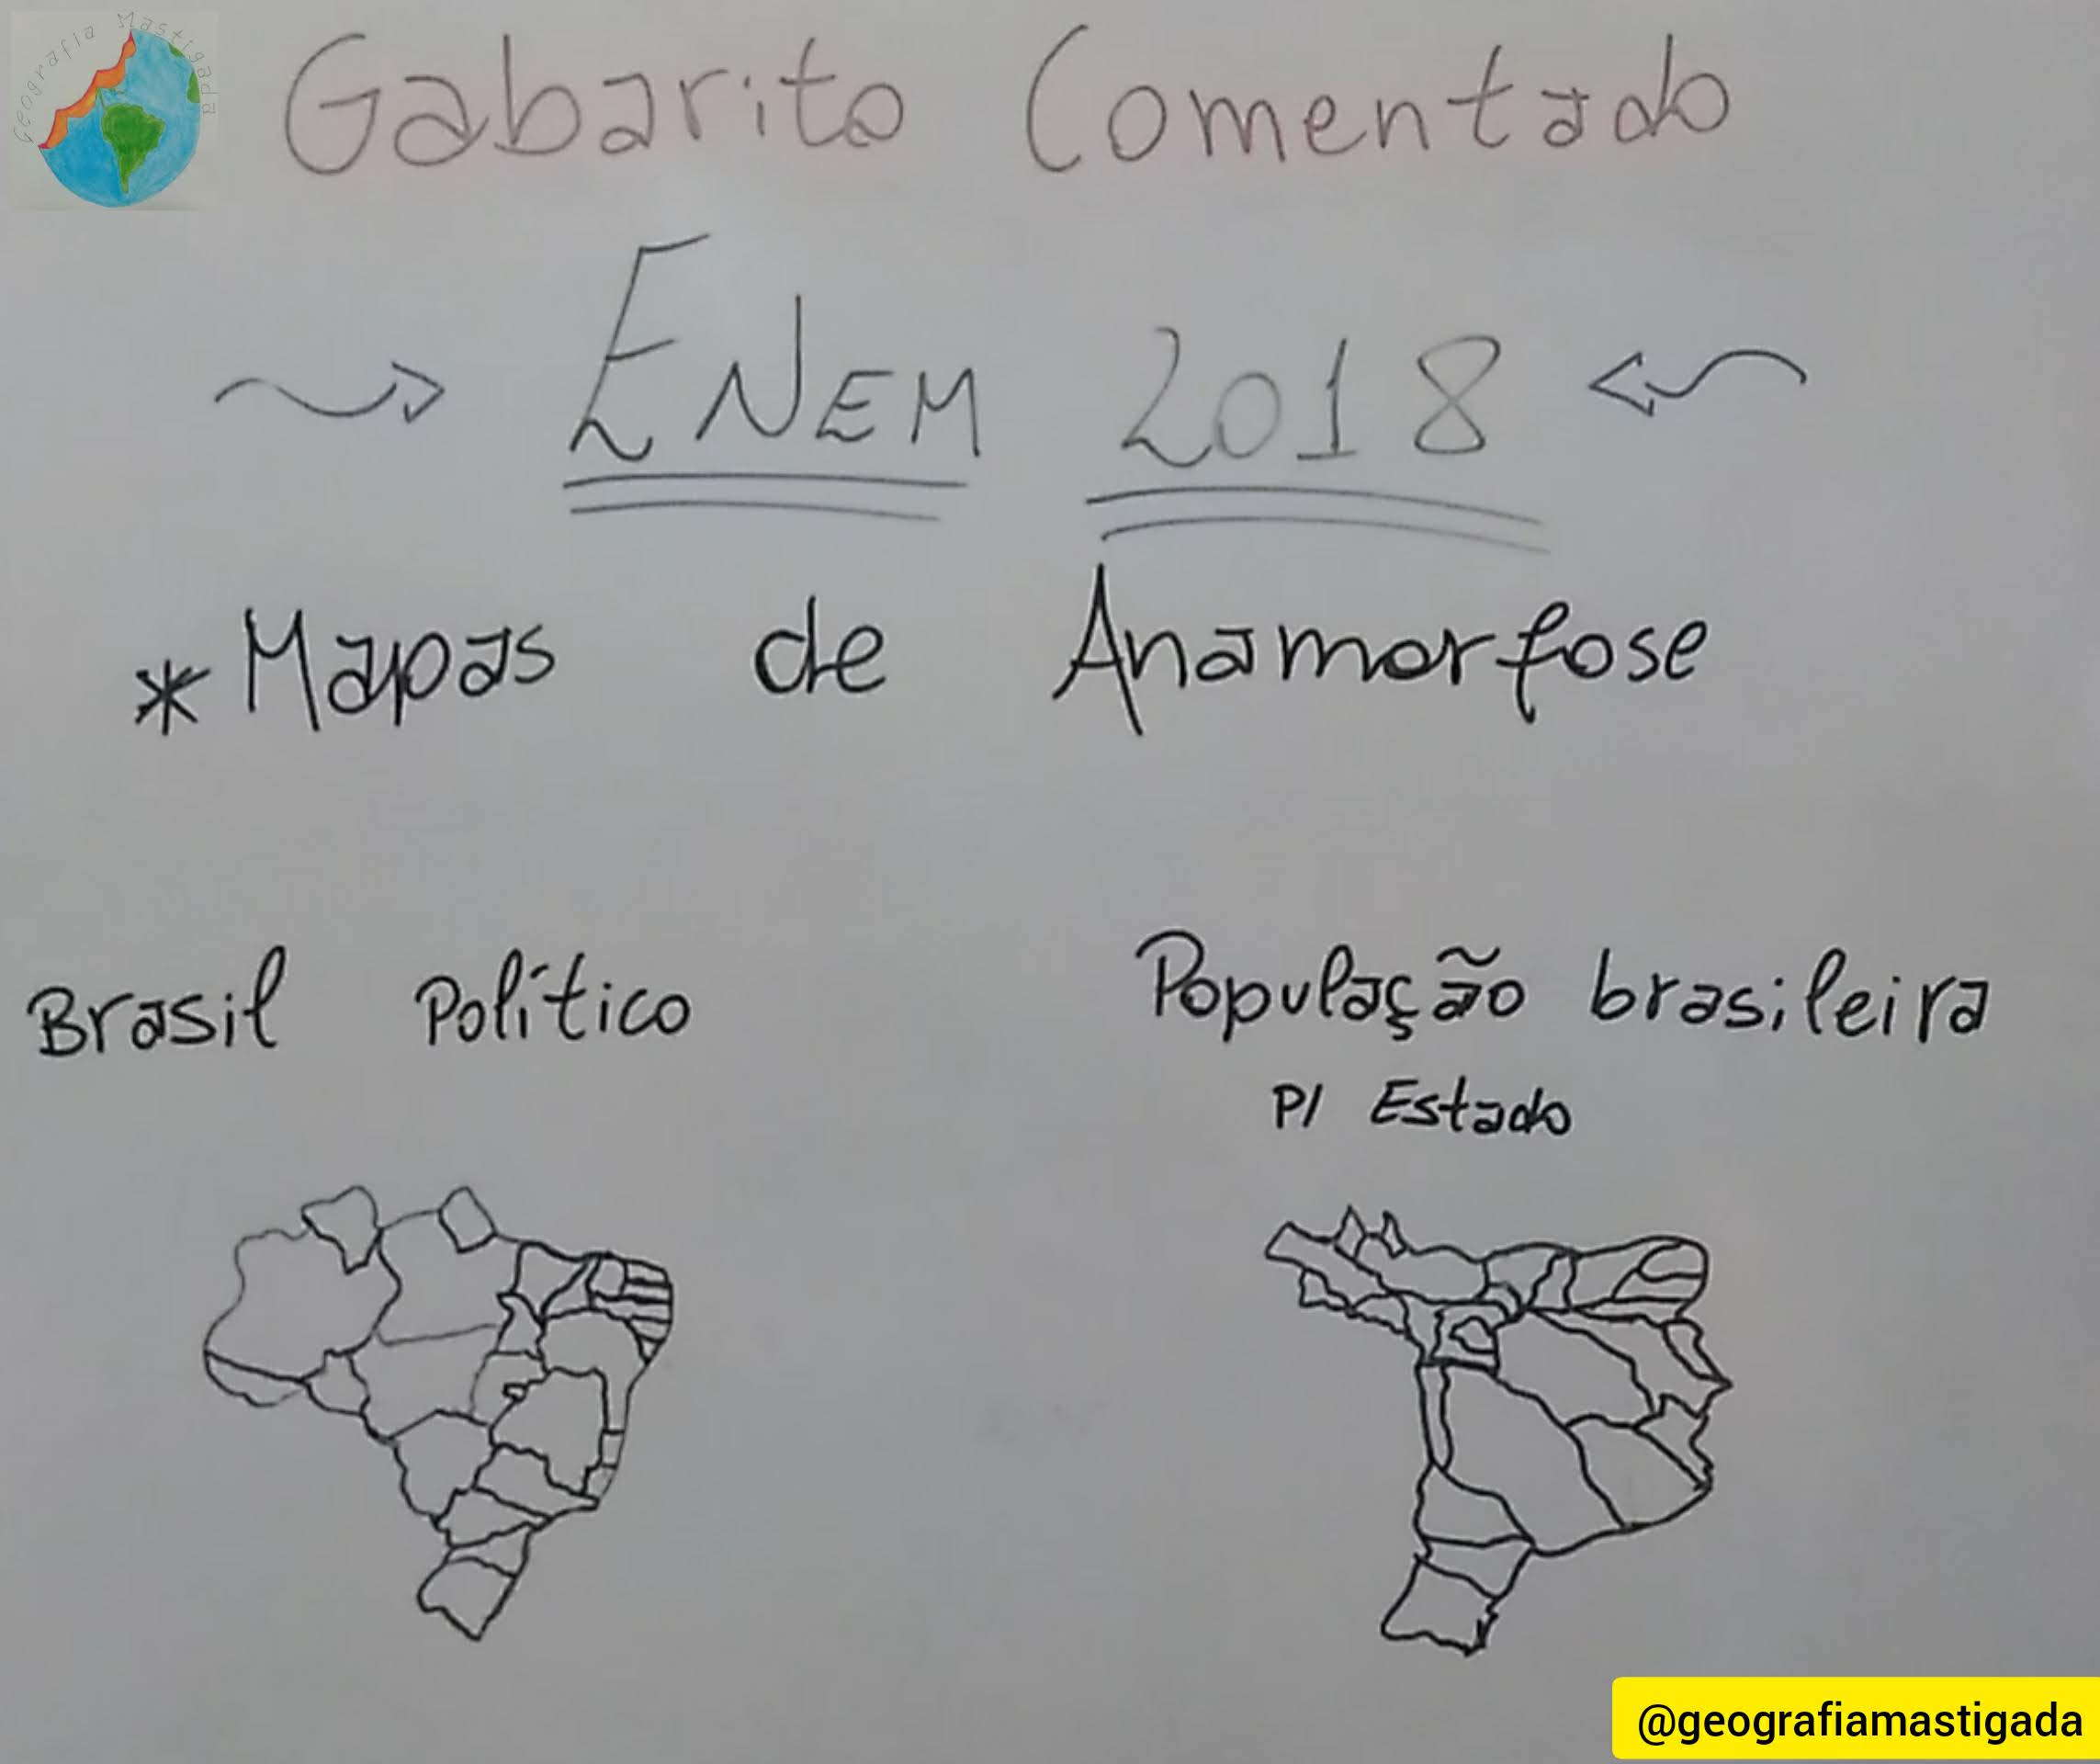 Geografia Mastigada
Gabarito Comentado
ENEM 2018
* Mapas de Anamorfose
Brasil Político
População brasileira
P/ Estado
@geografiamastigada